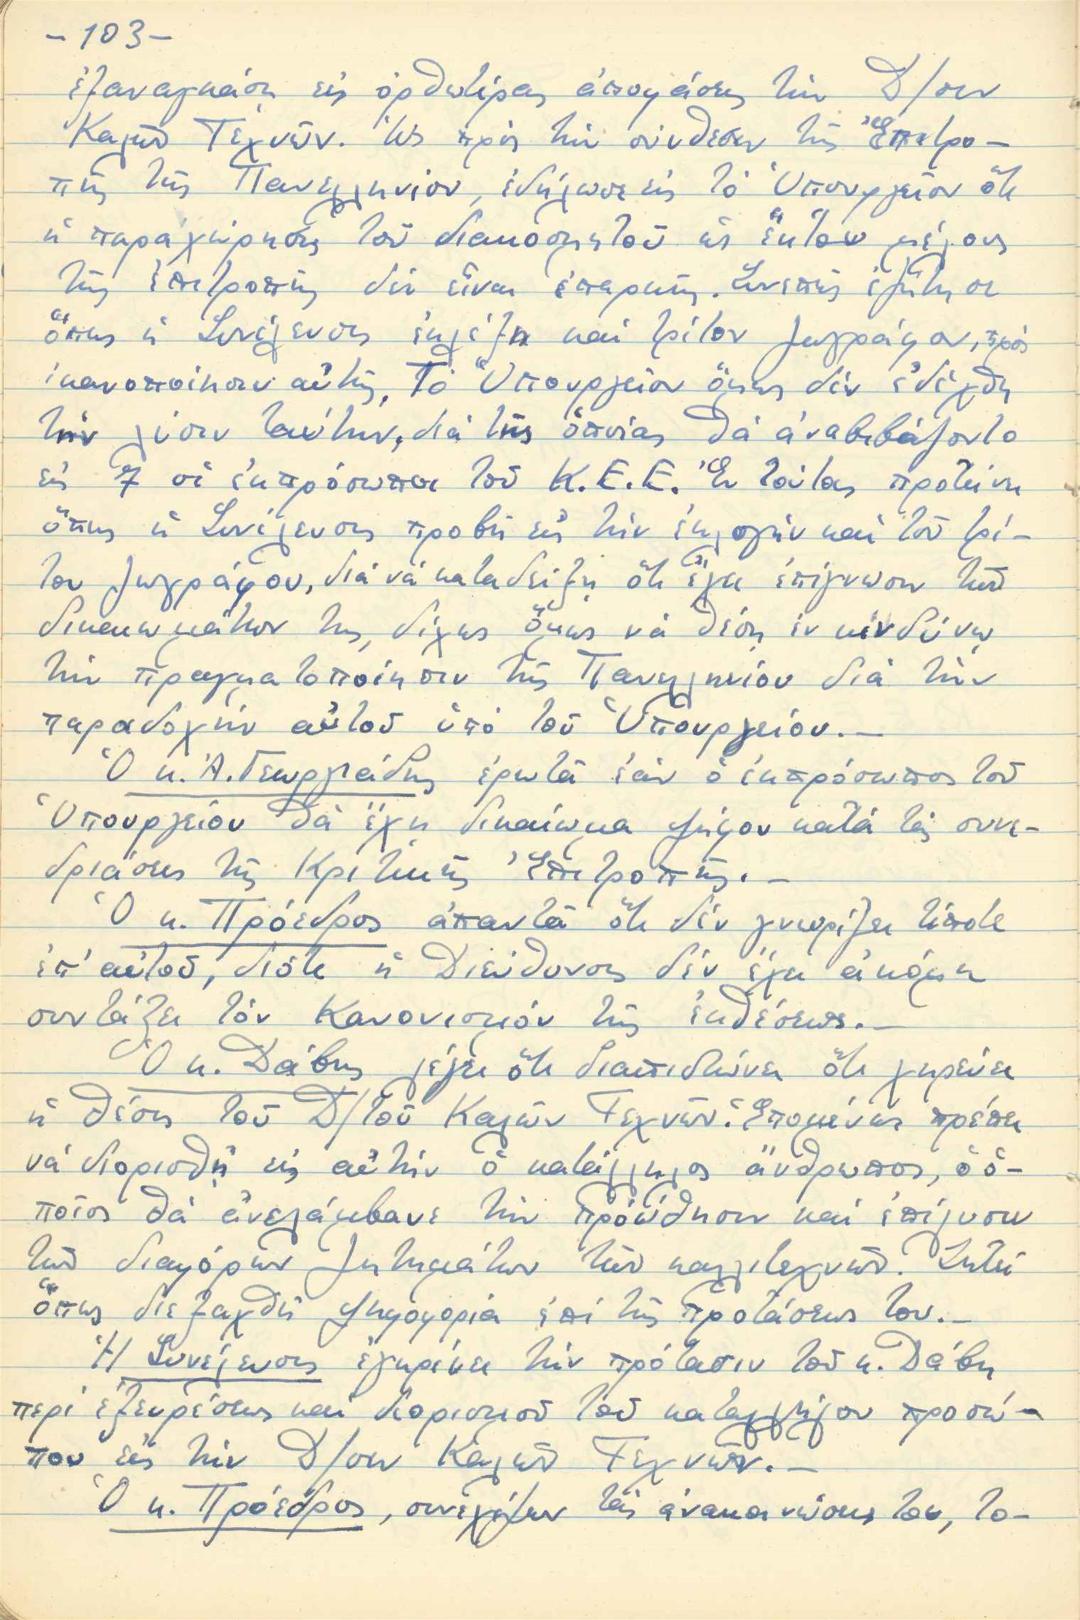 -103-
ἐξαναγκάση εἰς ὀρθωτέρας ἀποφάσεις τὴν Δ/σιν
Καλῶν Τεχνῶν. Ὡς πρὸς τὴν σύνθεσιν τῆς Ἐπιτρο-
πῆς τῆς Πανελληνίου, ἐδήλωσε εἰς τὸ Ὑπουργεῖον ὅτι
ἡ παραχώρησις τοῦ διακοσμητοῦ ὡς ἕκτου μέλους
τῆς ἐπιτροπῆς δὲν εἶναι ἐπαρκής. Συνεπῶς ἐζήτησε
ὅπως ἡ Συνέλευσις ἐκλέξη καὶ τρίτον ζωγράφον, πρὸς
ἱκανοποίησιν αὐτῆς. Τὸ Ὑπουργεῖον ὅμως δὲν ἐδέχθη
τὴν λύσιν ταύτην, διὰ τῆς ὁποίας θὰ ἀνεβιβάζοντο
εἰς 7 οἱ ἐκπρόσωποι τοῦ Κ.Ε.Ε. Ἐν τούτοις προτείνει
ὅπως ἡ Συνέλευσις προβῆ εἰς τὴν ἐκλογὴν καὶ τοῦ τρί-
του ζωγράφου, διὰ νὰ καταδείξη ὅτι ἔχει ἐπίγνωσιν τῶν
δικαιωμάτων της, δίχως ὅμως νὰ θέση ἐν κινδύνω
τὴν πραγματοποίησιν τῆς Πανελληνίου διὰ τὴν
παραδοχὴν αὐτοῦ ὑπὸ τοῦ Ὑπουργείου.—
Ὁ κ. Ἀ. Γεωργιάδης ἐρωτᾶ ἐὰν ὁ ἐκπρόσωπος τοῦ
Ὑπουργείου θὰ ἔχη δικαίωμα ψήφου κατὰ τὰς συνε-
δριάσεις τῆς Κριτικῆς Ἐπιτροπῆς.—
Ὁ κ. Πρόεδρος ἀπαντᾶ ὅτι δὲν γνωρίζει τίποτε
ἐπ' αὐτοῦ, διότι ἡ Διεύθυνσις δὲν ἔχει ἀκόμη
συντάξει τὸν Κανονισμὸν τῆς ἐκθέσεως.—
Ὁ κ. Δάβης λέγει ὅτι διαπιστώνει ὅτι χηρεύει
ἡ θέσις τοῦ Δ/τοῦ Καλῶν Τεχνῶν. Ἑπομένως πρέπει
νὰ διορισθῆ εἰς αὐτὴν ὁ κατάλληλος ἄνθρωπος, ὁ ὁ-
ποῖος θὰ ἀνελάμβανε τὴν προώθησιν καὶ ἐπίλυσιν
τῶν διαφόρων ζητημάτων τῶν καλλιτεχνῶν. Ζητεῖ
ὅπως διεξαχθῆ ψηφοφορία ἐπὶ τῆς προτάσεώς του.—
Ἡ Συνέλευσις ἐγκρίνει τὴν πρότασιν τοῦ κ. Δάβη
περὶ ἐξευρέσεως καὶ διορισμοῦ τοῦ καταλλήλου προσώ-
που εἰς τὴν Δ/σιν Καλῶν Τεχνῶν.—
Ὁ κ. Πρόεδρος, συνεχίζων τὰς ἀνακοινώσεις του, το-